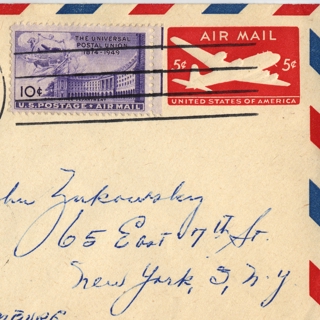 THE UNIVERSAL
POSTAL UNION
1874-1949
10¢
U.S. POSTAGE · AIR MAIL
AIR MAIL
5¢ 5¢
UNITED STATES OF AMERICA
Zukowsky
65 East 7th St.
New York, 3, N.Y.